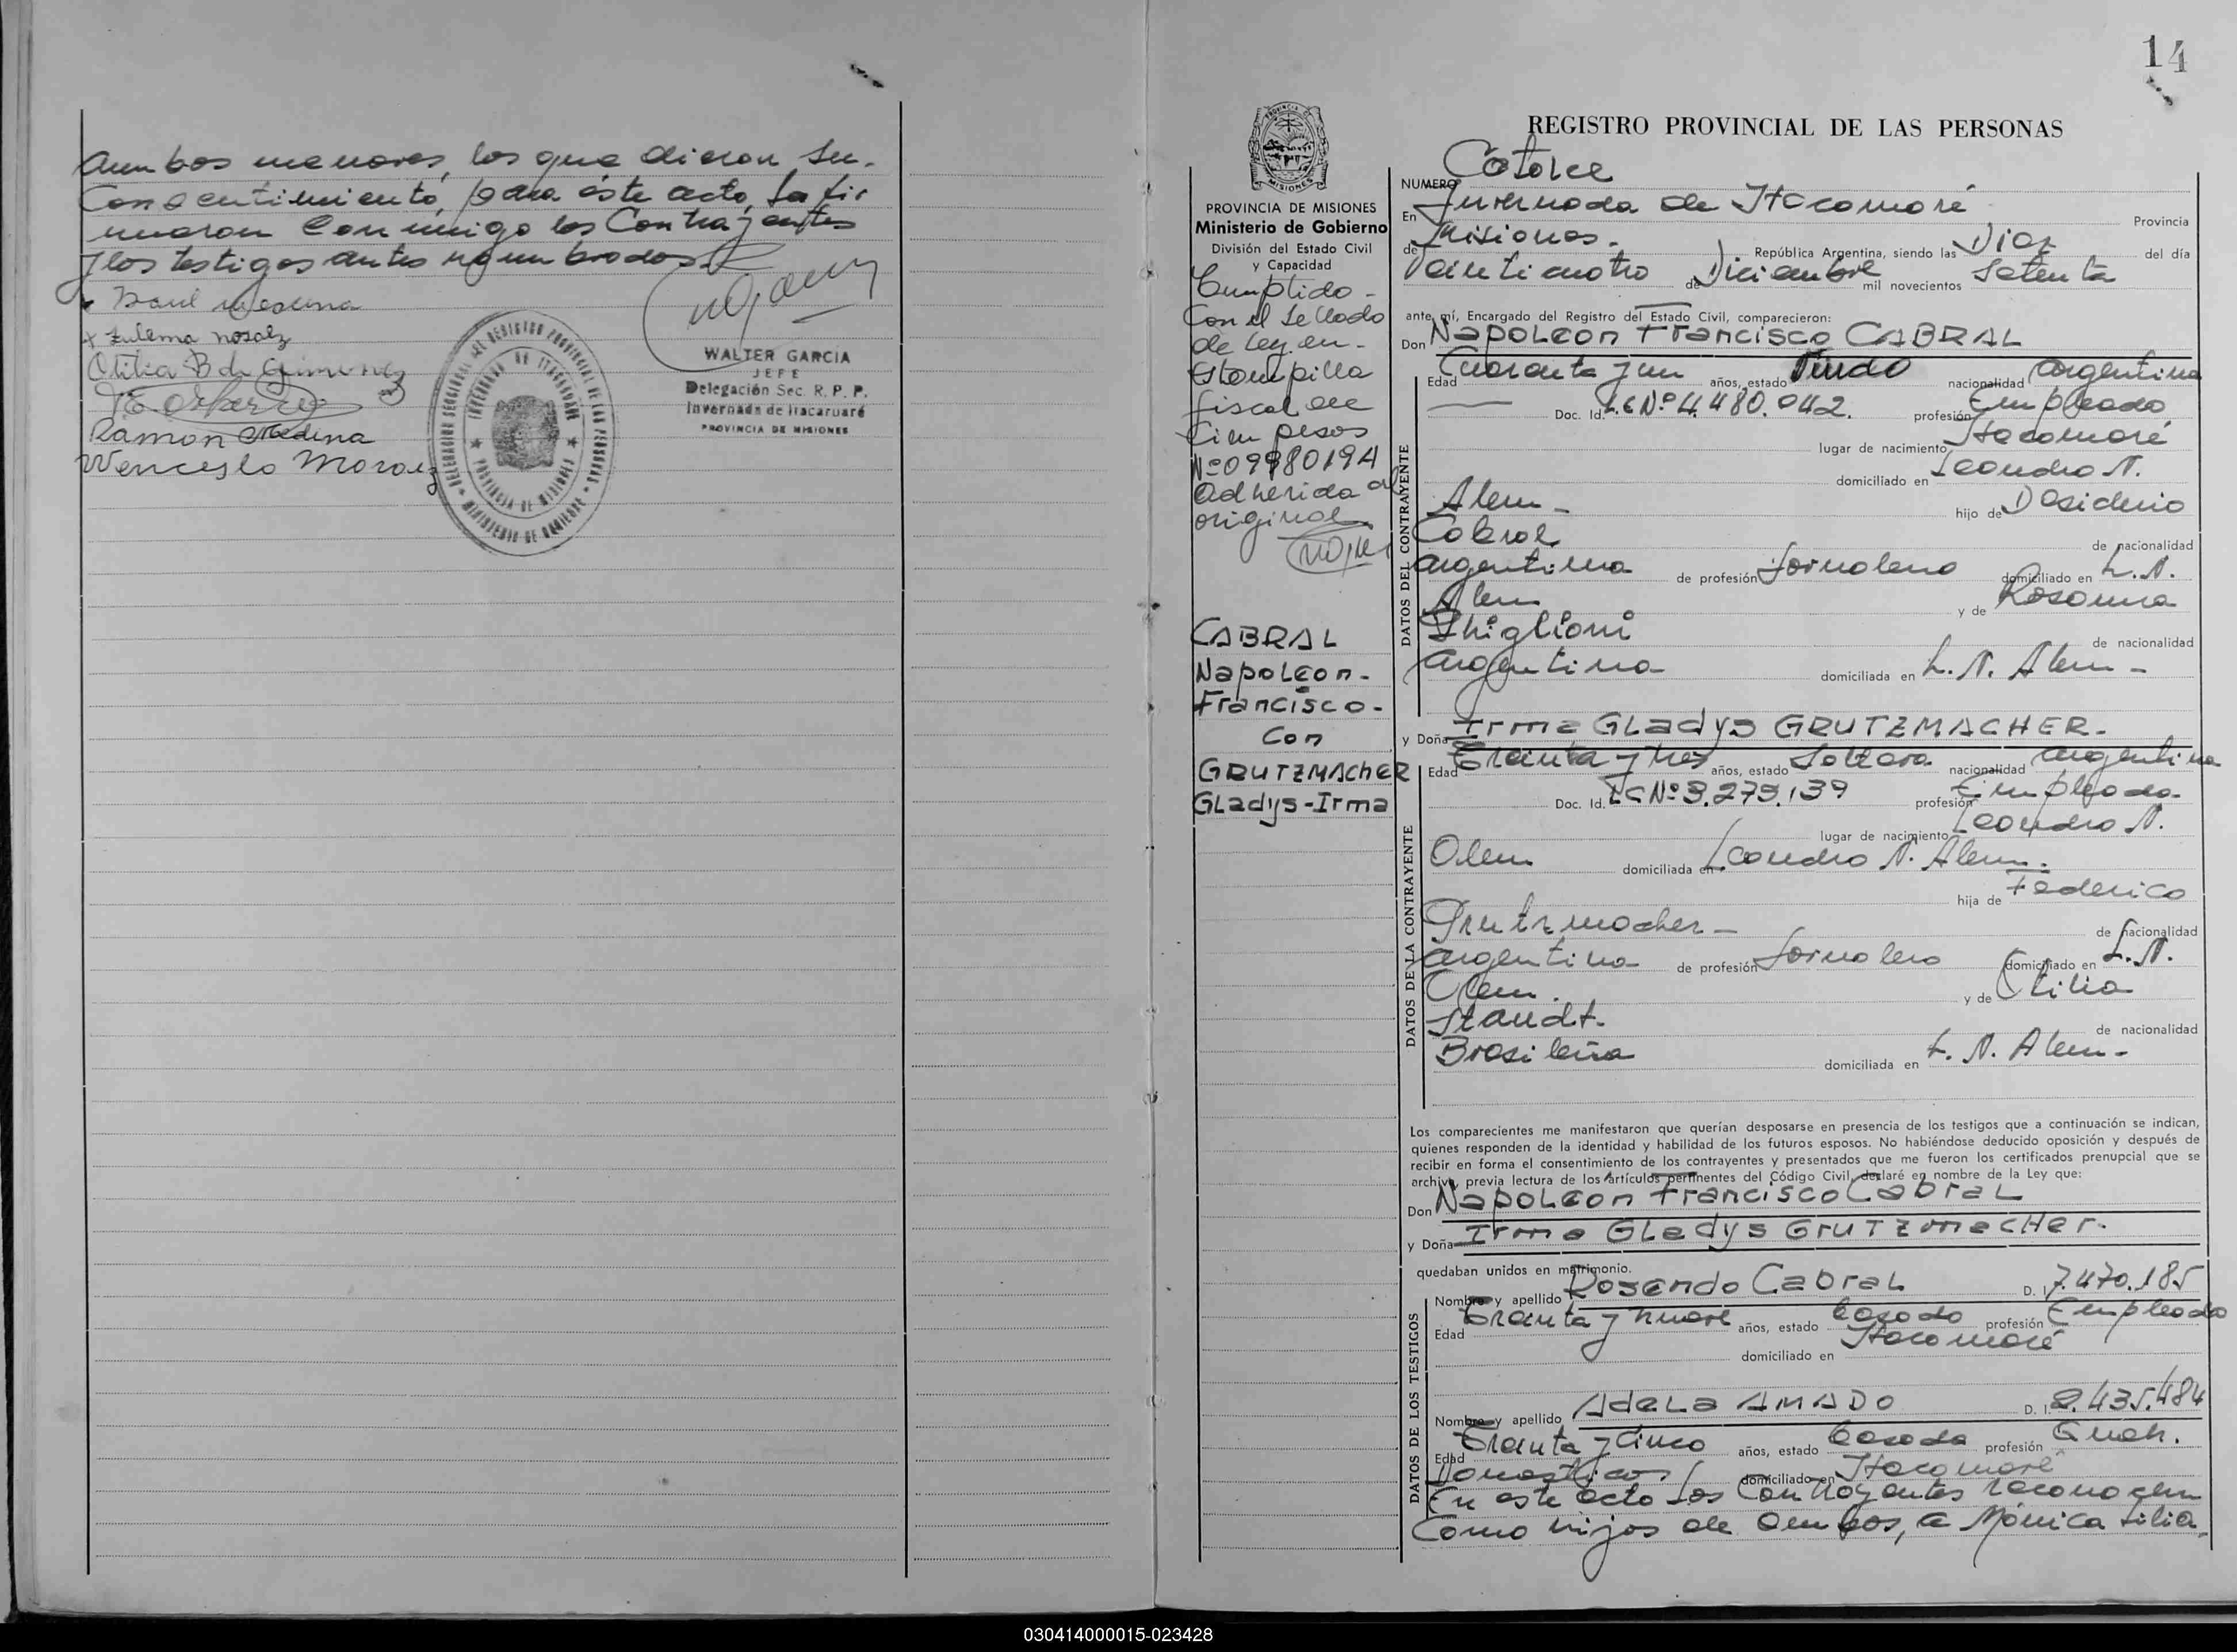 Ambos menores, los que dieron su.
Consentimiento, para éste acto, la fir
maron Conmigo los Contrayentes
y los testigos antes nombrados.
Zulema
Otilia B de Gimenez
Ramon Medina
WALTER GARCIA
JEFE
Delegación Sec. R. P. P.
Invernada de Itacaruaré
PROVINCIA DE MISIONES
14
REGISTRO PROVINCIAL DE LAS PERSONAS
PROVINCIA DE MISIONES
Ministerio de Gobierno
División del Estado Civil
y Capacidad
Cumplido -
Con el Sellado
de Ley en -
Estampilla
fiscal de
Cien pesos
Nº 09980194
Adherida al
original
CABRAL
Napoleon -
Francisco -
Con
GRUTZMACHER
Gladys-Irma
NUMERO Catorce
En Invernada de Itacaruaré Provincia
de Misiones. República Argentina, siendo las Diez del día
Veinticuatro de Diciembre mil novecientos Setenta
ante mí, Encargado del Registro del Estado Civil, comparecieron:
Don Napoleon Francisco CABRAL
DATOS DEL CONTRAYENTE
Edad Cuarenta y un años, estado Viudo nacionalidad Argentina
Doc. Id. L.E Nº 4.480.042. profesión Empleado
lugar de nacimiento Itacaruaré
domiciliado en Leandro N.
Alem - hijo de Desiderio
Cabral de nacionalidad
Argentina de profesión Jornalero domiciliado en L.N.
Alem y de Rosanna
Ghiglioni de nacionalidad
Argentina domiciliada en L. N. Alem -
y Doña Irma Gladys GRUTZMACHER.
DATOS DE LA CONTRAYENTE
Edad Treinta y tres años, estado Soltera nacionalidad Argentina
Doc. Id. LC Nº 3.279.139 profesión Empleada
lugar de nacimiento Leandro N.
Alem domiciliada en Leandro N. Alem.
hija de Federico
Grutzmacher - de nacionalidad
Argentina de profesión Jornalero domiciliado en L.N.
Alem. y de Otilia
Staudt. de nacionalidad
Brasileña domiciliada en L. N. Alem -
Los comparecientes me manifestaron que querían desposarse en presencia de los testigos que a continuación se indican,
quienes responden de la identidad y habilidad de los futuros esposos. No habiéndose deducido oposición y después de
recibir en forma el consentimiento de los contrayentes y presentados que me fueron los certificados prenupcial que se
archiva, previa lectura de los artículos pertinentes del Código Civil, declaré en nombre de la Ley que:
Don Napoleon Francisco Cabral
y Doña Irma Gladys Grutzmacher.
quedaban unidos en matrimonio.
DATOS DE LOS TESTIGOS
Nombre y apellido Rosendo Cabral D. I. 7.470.185
Edad Treinta y nueve años, estado Casado profesión Empleado
domiciliado en Itacaruaré
Nombre y apellido Adela AMADO D. I. 2.435.484
Edad Treinta y Cinco años, estado Casada profesión Queh.
Domesticos domiciliado en Itacaruaré
En este acto los Contrayentes reconocen
Como hijos de Ambos, a Mónica Lilia,
030414000015-023428